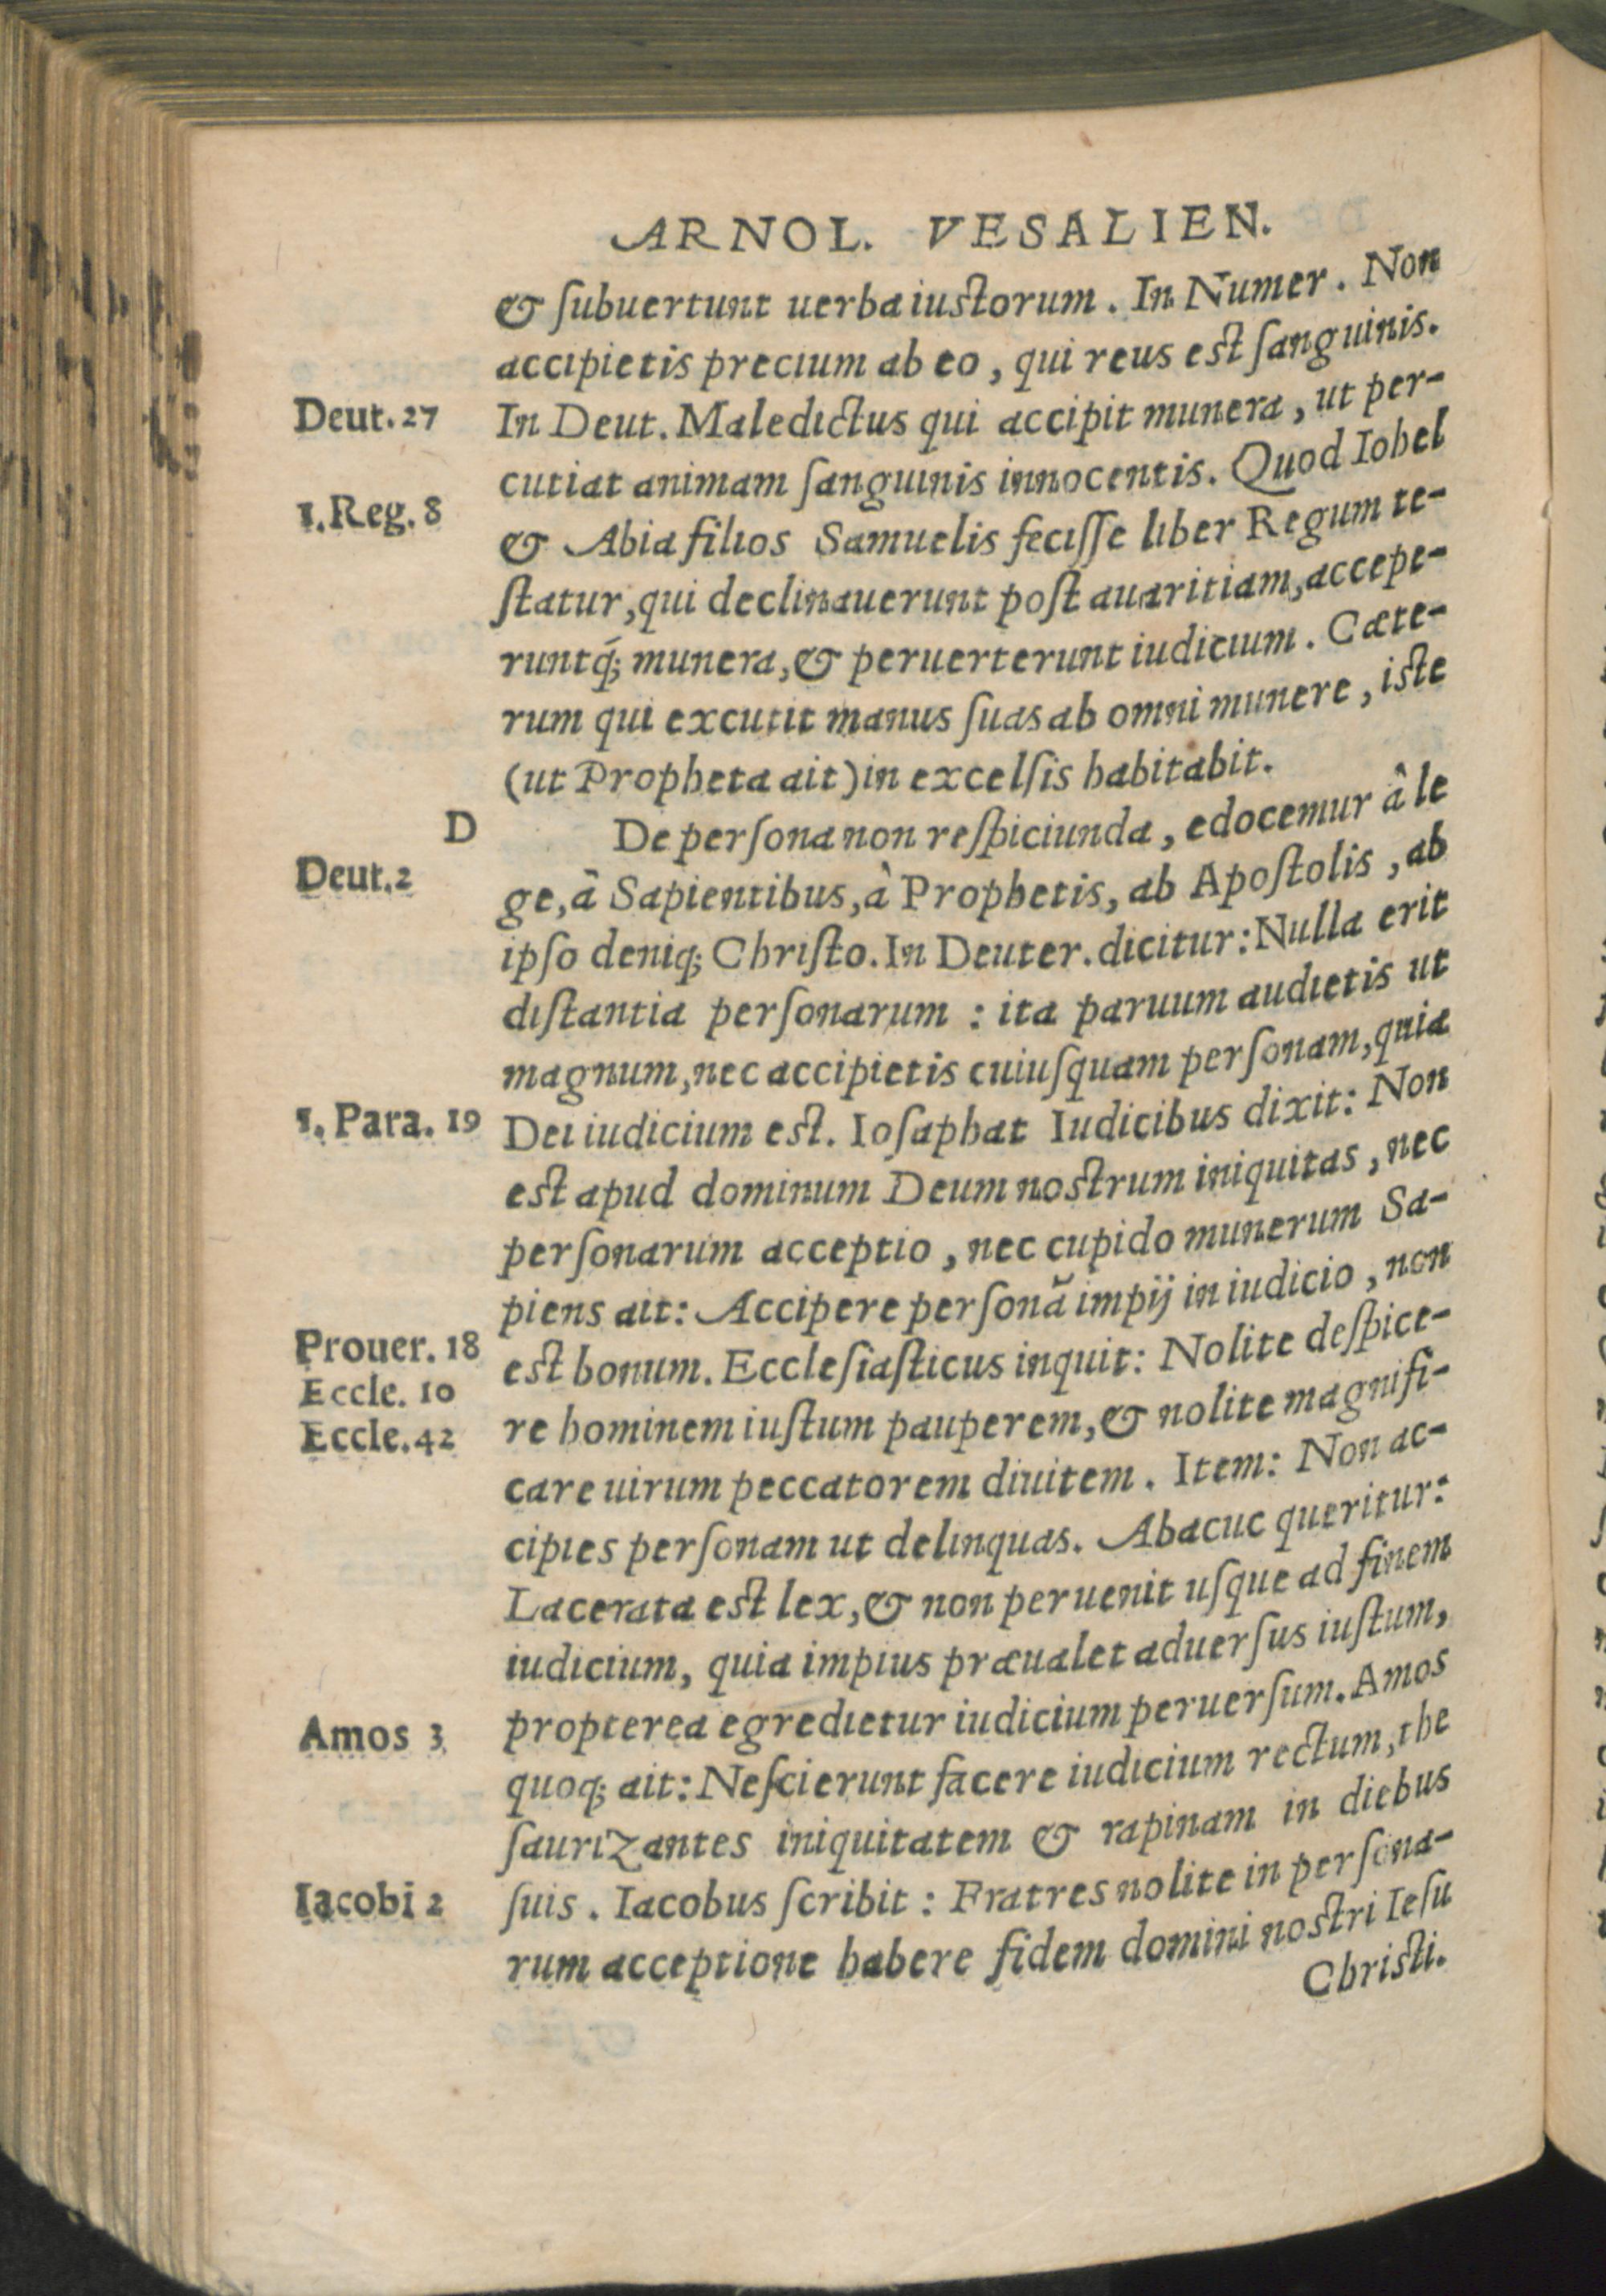 ARNOL. VESALIEN.
& ſubuertunt uerba iuſtorum. In Numer. Non
accipietis precium ab eo, qui reus eſt ſanguinis.
Deut. 27
In Deut. Maledictus qui accipit munera, ut per-
cutiat animam ſanguinis innocentis. Quod Iohel
1. Reg. 8
& Abia filios Samuelis feciſſe liber Regum te-
ſtatur, qui declinauerunt poſt auaritiam, accepe-
runtq́; munera, & peruerterunt iudicium. Cæte-
rum qui excutit manus ſuas ab omni munere, iſte
(ut Propheta ait) in excelſis habitabit.
D
De perſona non reſpiciunda, edocemur â le
Deut. 2
ge, â Sapientibus, à Prophetis, ab Apoſtolis, ab
ipſo deniq; Chriſto. In Deuter. dicitur: Nulla erit
diſtantia perſonarum : ita paruum audietis ut
magnum, nec accipietis cuiuſquam perſonam, quia
1. Para. 19
Dei iudicium eſt. Ioſaphat Iudicibus dixit: Non
eſt apud dominum Deum noſtrum iniquitas, nec
perſonarum acceptio, nec cupido munerum Sa-
piens ait: Accipere perſonã impij in iudicio, non
Prouer. 18
eſt bonum. Eccleſiaſticus inquit: Nolite deſpice-
Eccle. 10
Eccle. 42
re hominem iuſtum pauperem, & nolite magnifi-
care uirum peccatorem diuitem. Item: Non ac-
cipies perſonam ut delinquas. Abacuc queritur:
Lacerata eſt lex, & non peruenit uſque ad finem
iudicium, quia impius præualet aduerſus iuſtum,
propterea egredietur iudicium peruerſum. Amos
Amos 3
quoq; ait: Neſcierunt facere iudicium rectum, the
ſaurizantes iniquitatem & rapinam in diebus
Iacobi 2
ſuis. Iacobus ſcribit : Fratres nolite in perſona-
rum acceptione habere fidem domini noſtri Ieſu
Chriſti.